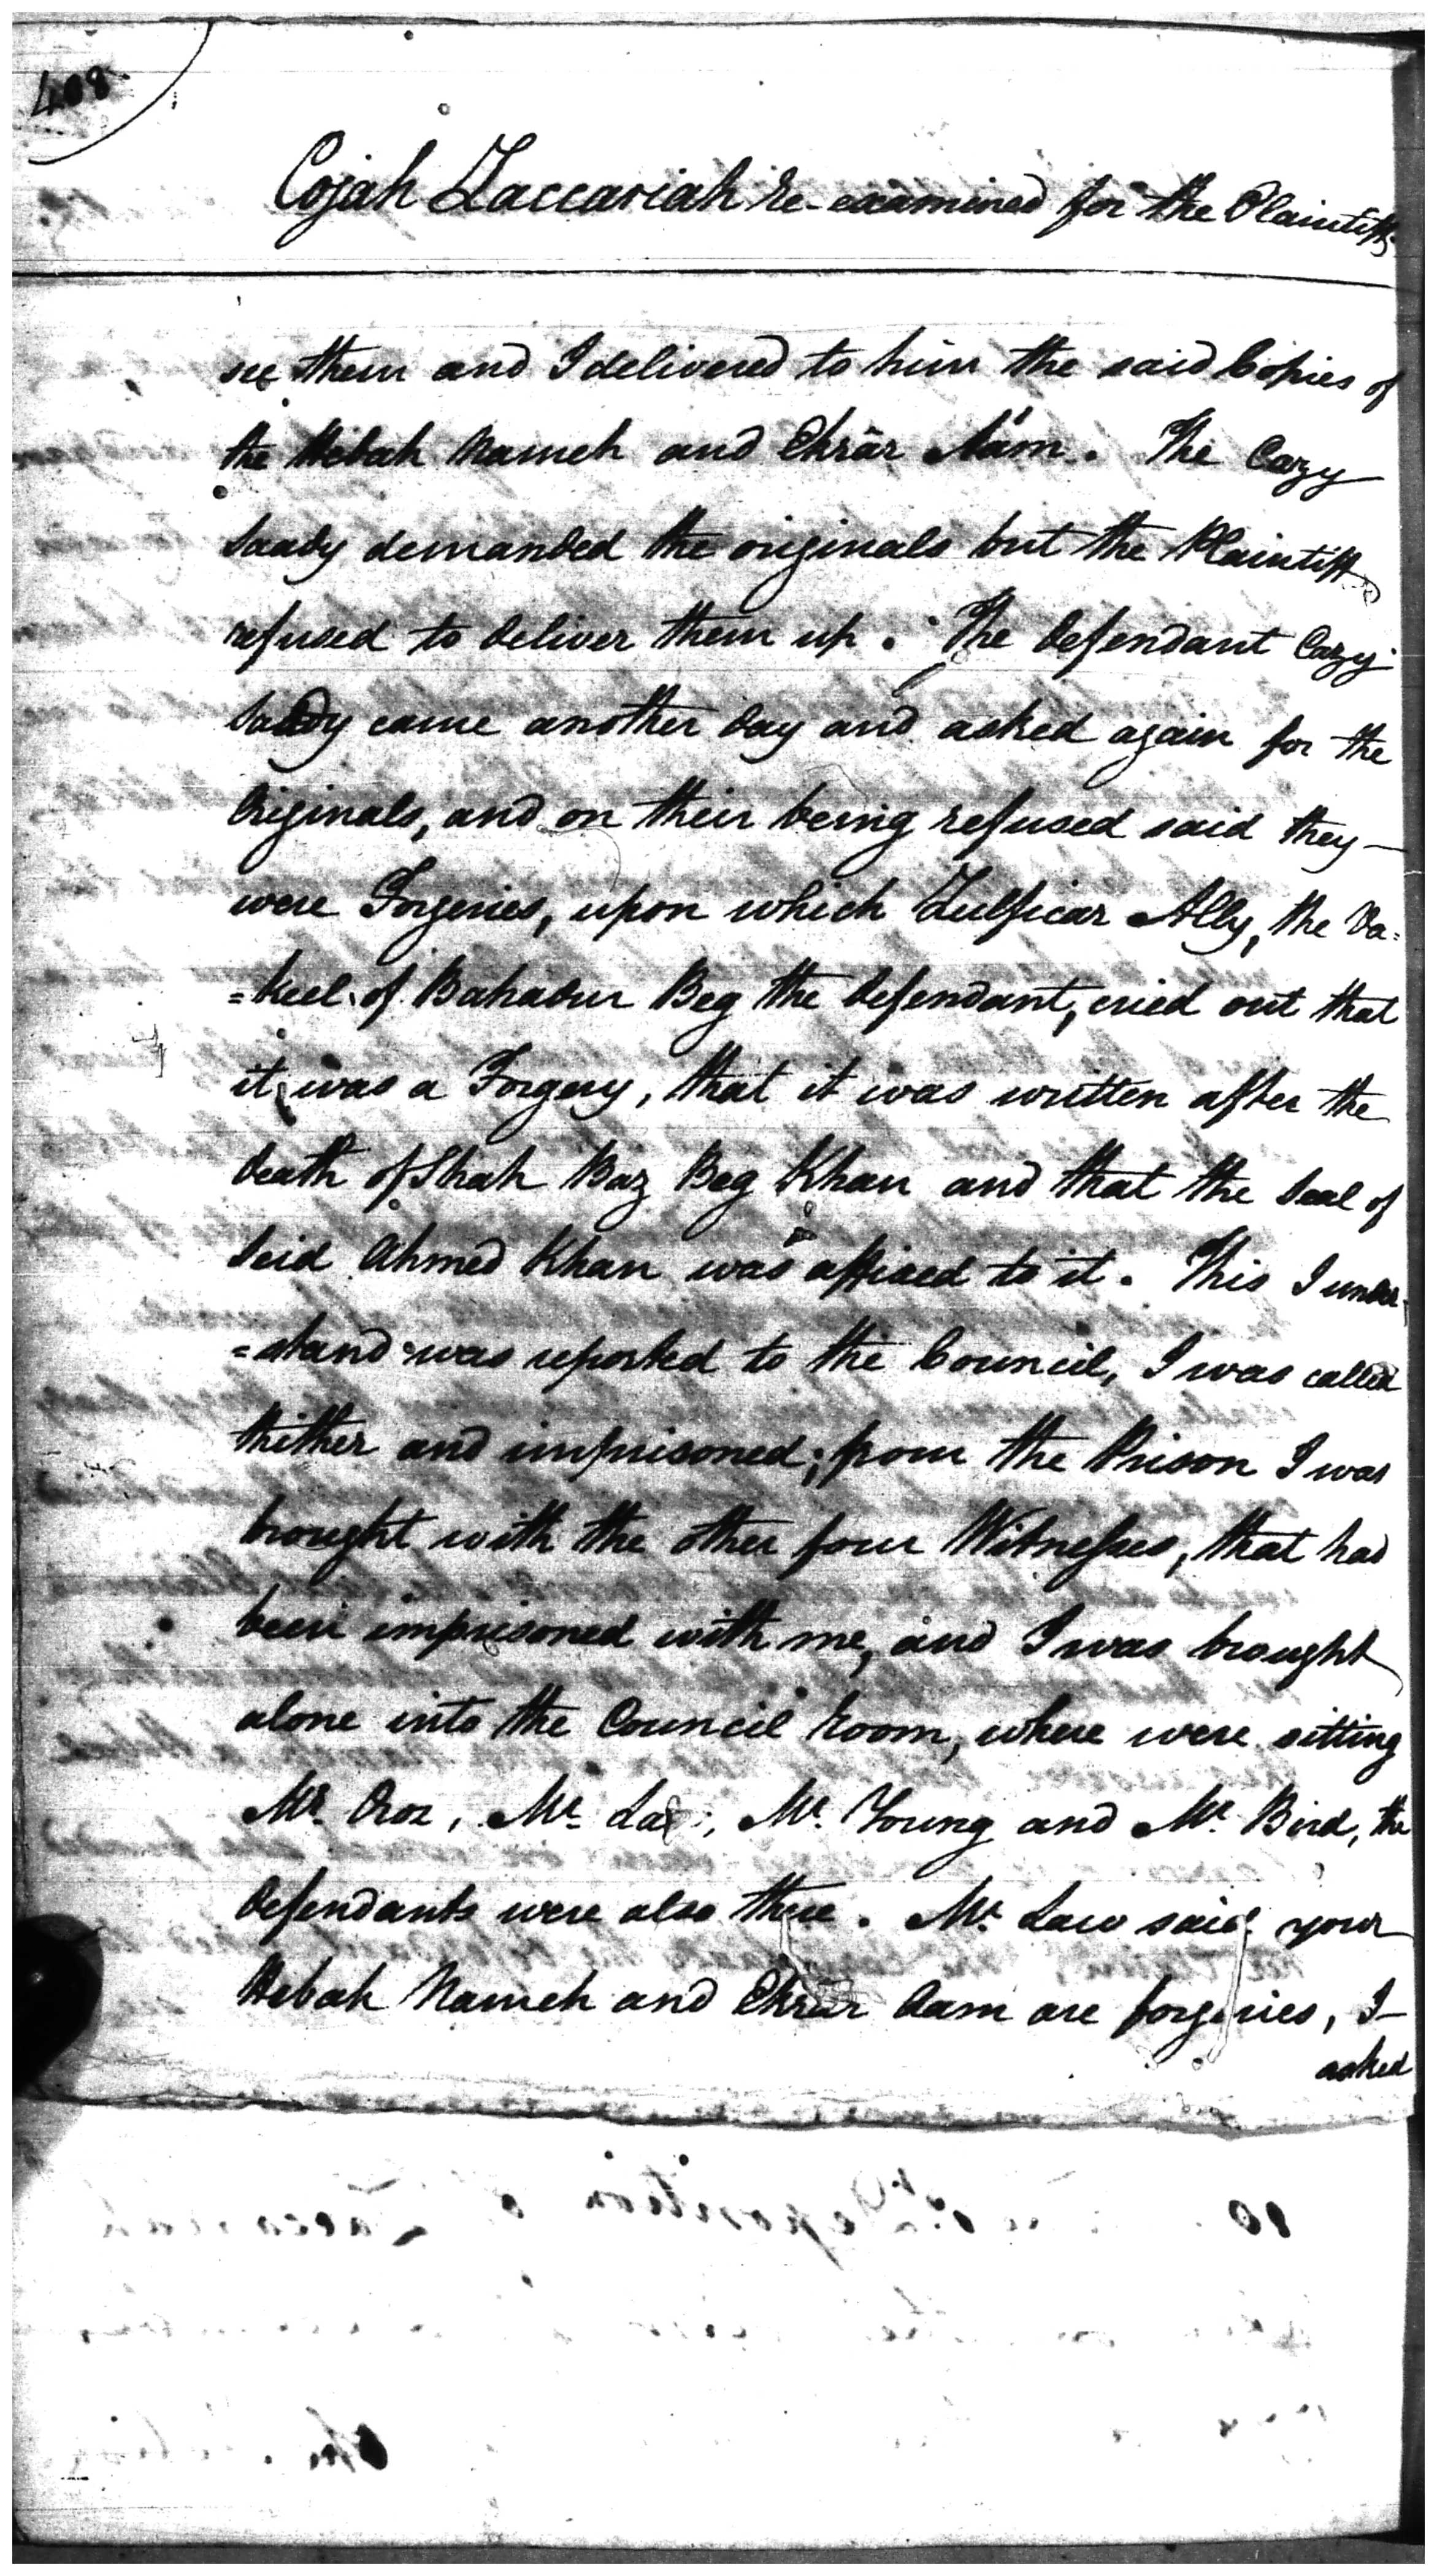 408
Cojah Zaccariah re-examined for the Plaintiff,
see them and I delivered to him the said Copies of
the Hebah Nameh and Ekrār Aām. The Cazy
Saady demanded the originals but the Plaintiff
refused to deliver them up. The defendant Cazy
Saady came another day and asked again for the
Originals, and on their being refused said they—
were Forgeries, upon which Zulficar Ally, the Va=
=keel of Bahadur Beg the defendant, cried out that
it was a Forgery, that it was written after the
death of Shah Baz Beg Khan and that the Seal of
Seid Ahmed Khan was affixed to it. This I under=
=stand was reported to the Council, I was called
thither and imprisoned; from the Prison I was
brought with the other four Witnesses, that had
been imprisoned with me, and I was brought
alone into the Council Room, where were sitting
Mr. Mr. Mr. Young and Mr. Bird, the
defendants were also there. Mr. Law said your
Hebah Nameh and Ekrār Aam are forgeries, I—
asked